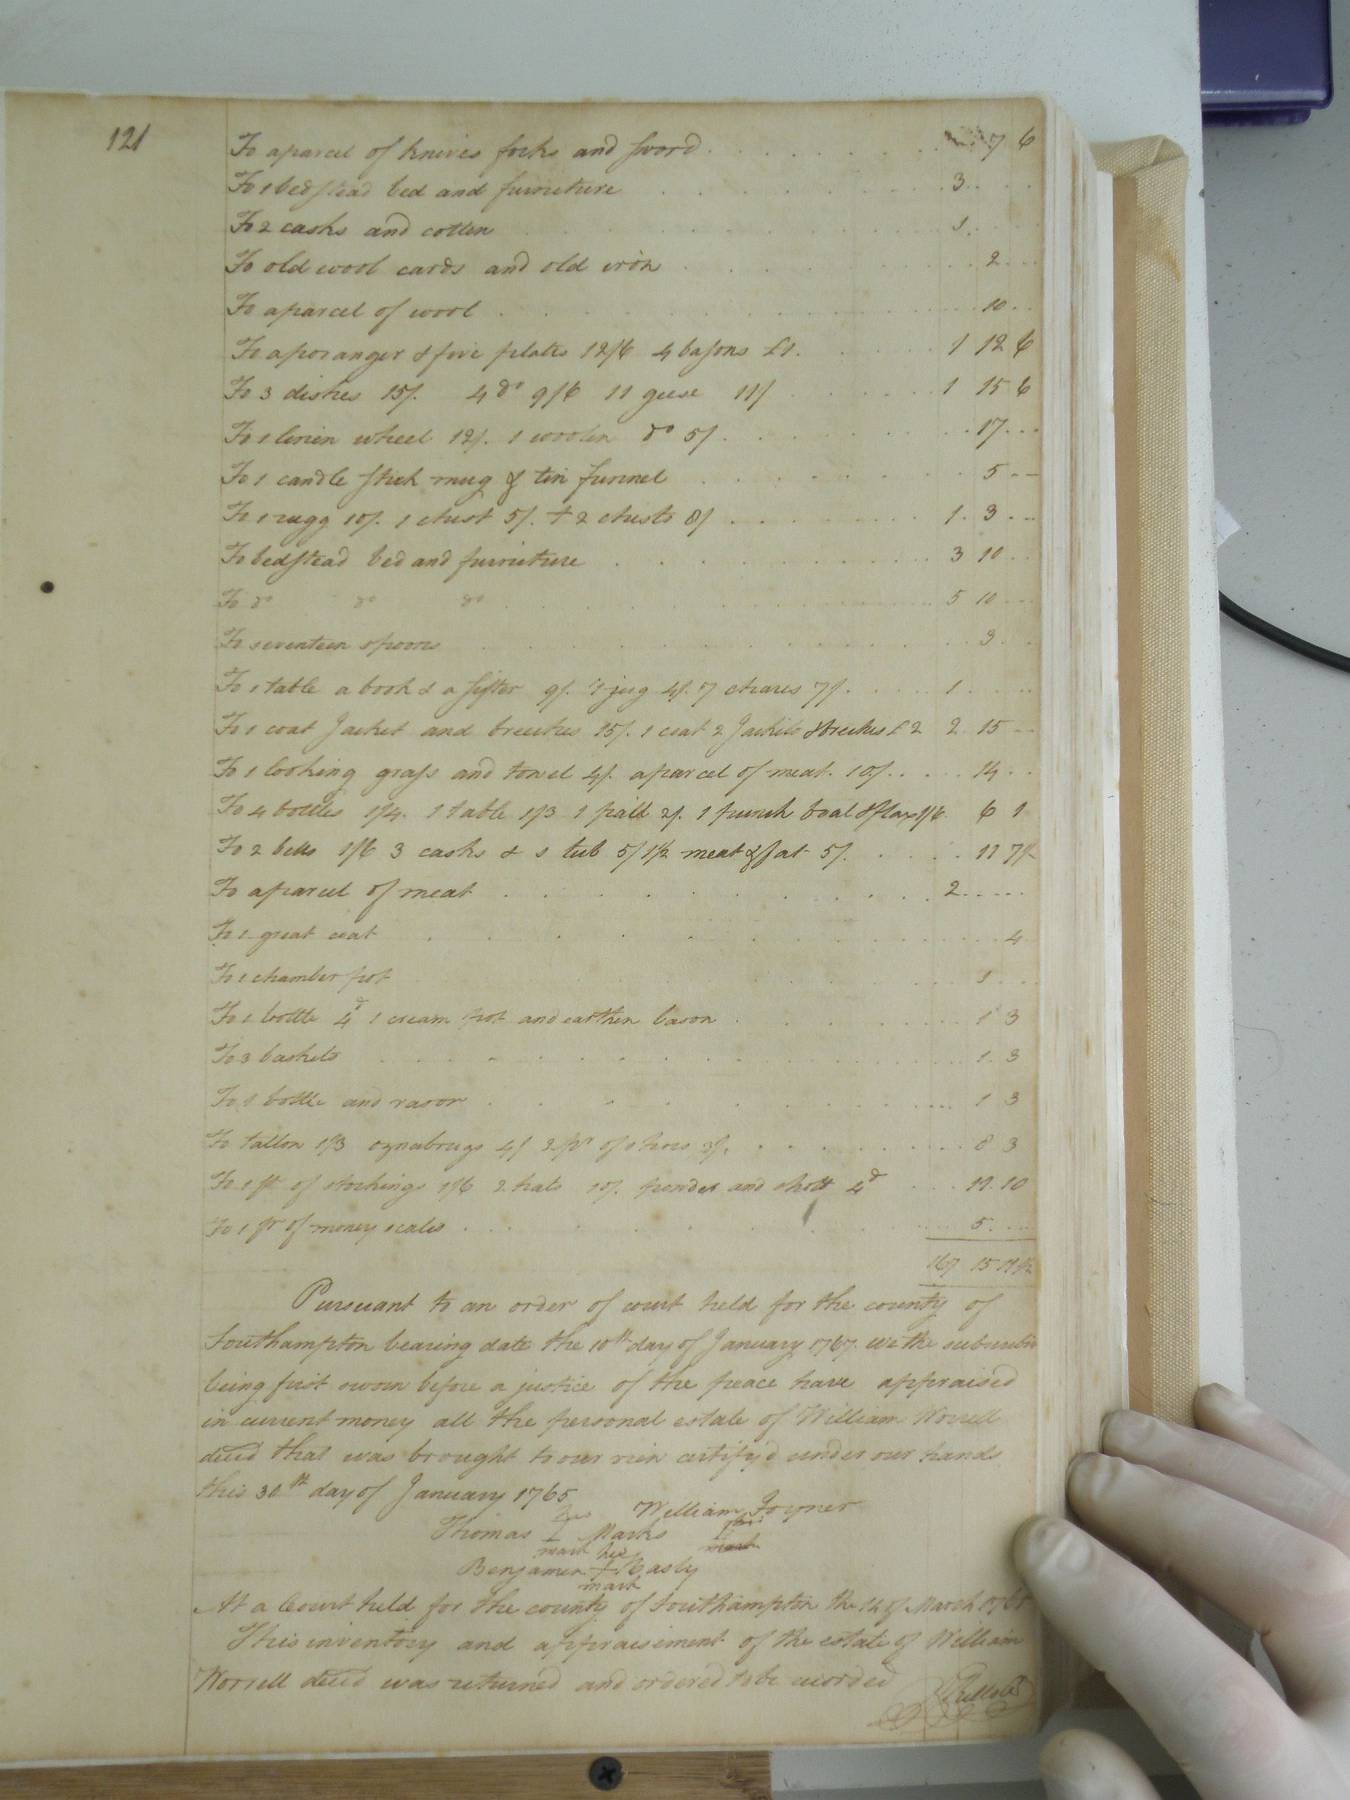 121
To a parcel of knives forks and sword . . . 7 6
To 1 bedstead bed and furniture . . . 3
To 2 casks and cotten . . . 1
To old wool cards and old iron . . . 2
To a parcel of wool . . . 10
To a poranger & five plates 12/6 4 basons £1. . . . 1 12 6
To 3 dishes 15/. 4 do 9/6 11 geese 11/ . . . 1 15 6
To 1 linin wheel 12/. 1 woolin do 5/. . . . 17
To 1 candle stick mug & tin funnel . . . 5
To 1 rugg 10/. 1 chest 5/. + 2 chests 8/ . . . 1 3
To bedstead bed and furniture . . . 3 10
To do do do . . . 5 10
To seventeen spoons . . . 3
To 1 table a book & a sifter 9/. 1 jug 4/. 7 chares 7/. . . . 1
To 1 coat Jacket and breeches 15/. 1 coat 2 Jackits & breches £2 2 15
To 1 looking grass and towel 4/. a parcel of meat. 10/. . . . 14
To 4 bottles 1/4. 1 table 1/3 1 pail 2/. 1 punch boal & flax 1/6 6 1
To 2 bells 1/6 3 casks & 1 tub 5/1½ meat & fat 5/. . . . 11 7½
To a parcel of meat . . . 2
To 1 great coat . . . 4
To 1 chamber pot . . . 1
To 1 bottle 4d 1 cream pot and earthen bason . . . 1 3
To 3 baskets . . . 1 3
To 1 bottle and rasor . . . 1 3
To tallon 1/3 oznabrugs 4/ 2 pr of shoes 3/. . . . 8 3
To 1 pr of stockings 1/6 2 hats 10/. powder and shott 4d . . . 11 10
To 1 pr of money scales . . . 5
167 15 11½
Pursuant to an order of court held for the county of
Southampton bearing date the 10th day of January 1767. we the
being first sworn before a justice of the peace have appraised
in current money all the personal estate of William Worrell
decd that was brought to our view certify'd under our hands
this 30th day of January 1765
his William Joyner
Thomas I Marks his
mark his mark
Benjamen +
mark
At a Court held for the county of Southampton the 14 of March
This inventory and appraisement of the estate of William
Worrell decd was returned and ordered to be recorded